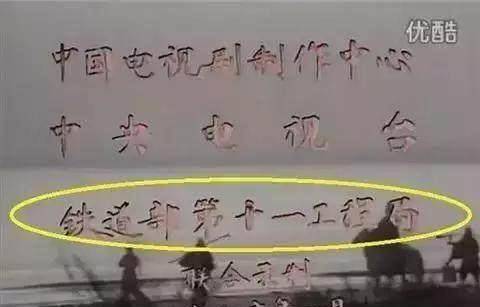 优酷
中国电视剧制作中心
中央电视台
铁道部第十一工程局
联合录制